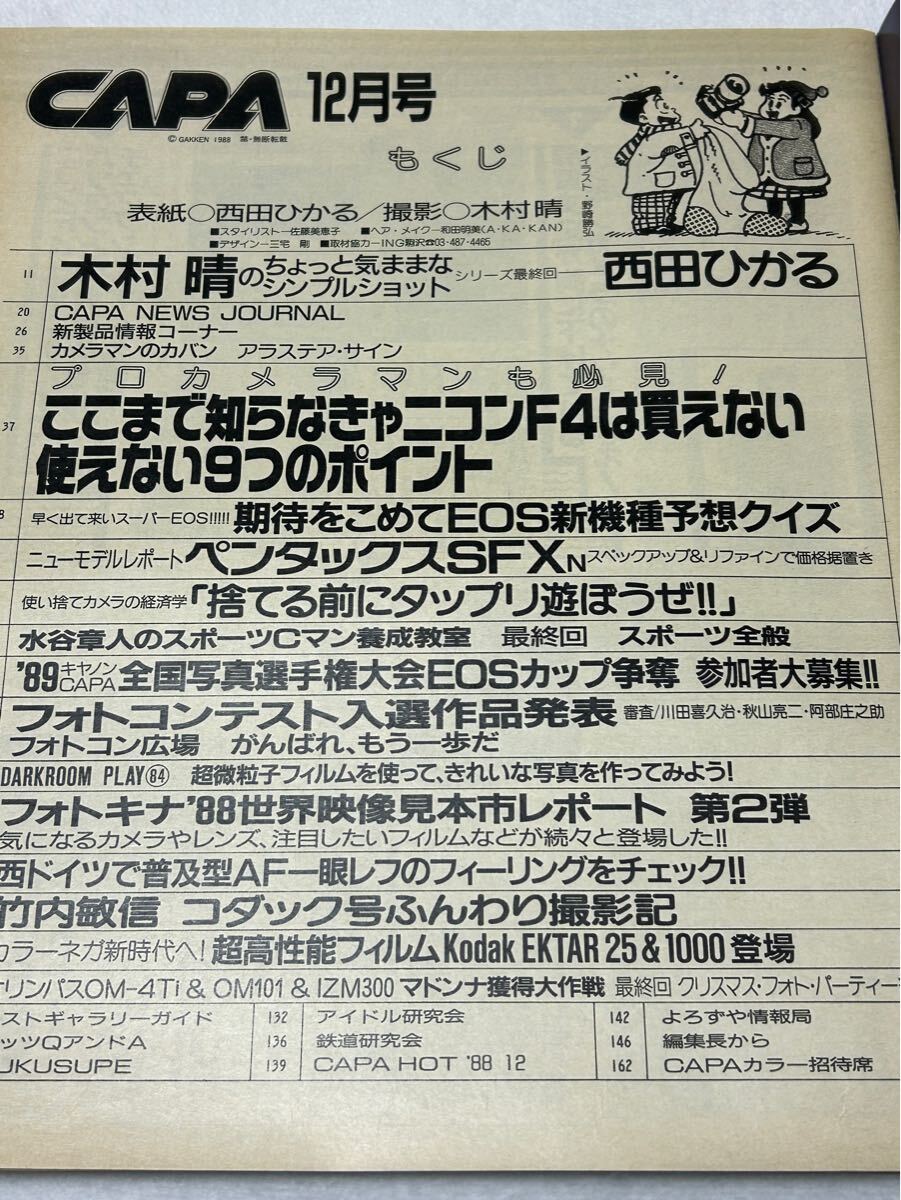 CAPA 12月号
© GAKKEN 1988 禁・無断転載
もくじ
▶イラスト・野崎勝弘
表紙○西田ひかる/撮影○木村晴
■スタイリスト—佐藤美恵子 ■ヘア・メイク—和田明美(A・KA・KAN)
■デザイン—三宅 剛 ■取材協力—ING駒沢☎03-487-4465
11 木村 晴のちょっと気ままなシンプルショット シリーズ最終回——西田ひかる
20 CAPA NEWS JOURNAL
26 新製品情報コーナー
35 カメラマンのカバン アラステア・サイン
プロカメラマンも必見!
37 ここまで知らなきゃニコンF4は買えない
使えない9つのポイント
8 早く出て来いスーパーEOS!!!!! 期待をこめてEOS新機種予想クイズ
ニューモデルレポート ペンタックスSFXN スペックアップ&リファインで価格据置き
使い捨てカメラの経済学 「捨てる前にタップリ遊ぼうぜ!!」
水谷章人のスポーツCマン養成教室 最終回 スポーツ全般
'89キヤノンCAPA全国写真選手権大会EOSカップ争奪 参加者大募集!!
フォトコンテスト入選作品発表 審査/川田喜久治・秋山亮二・阿部庄之助
フォトコン広場 がんばれ、もう一歩だ
DARKROOM PLAY 84 超微粒子フィルムを使って、きれいな写真を作ってみよう!
フォトキナ'88世界映像見本市レポート 第2弾
気になるカメラやレンズ、注目したいフィルムなどが続々と登場した!!
西ドイツで普及型AF一眼レフのフィーリングをチェック!!
竹内敏信 コダック号ふんわり撮影記
カラーネガ新時代へ! 超高性能フィルムKodak EKTAR 25 & 1000 登場
リンパスOM-4Ti & OM101 & IZM300 マドンナ獲得大作戦 最終回 クリスマス・フォト・パーティー
ストギャラリーガイド 132 アイドル研究会 142 よろずや情報局
ッツQアンドA 136 鉄道研究会 146 編集長から
UKUSUPE 139 CAPA HOT '88 12 162 CAPAカラー招待席